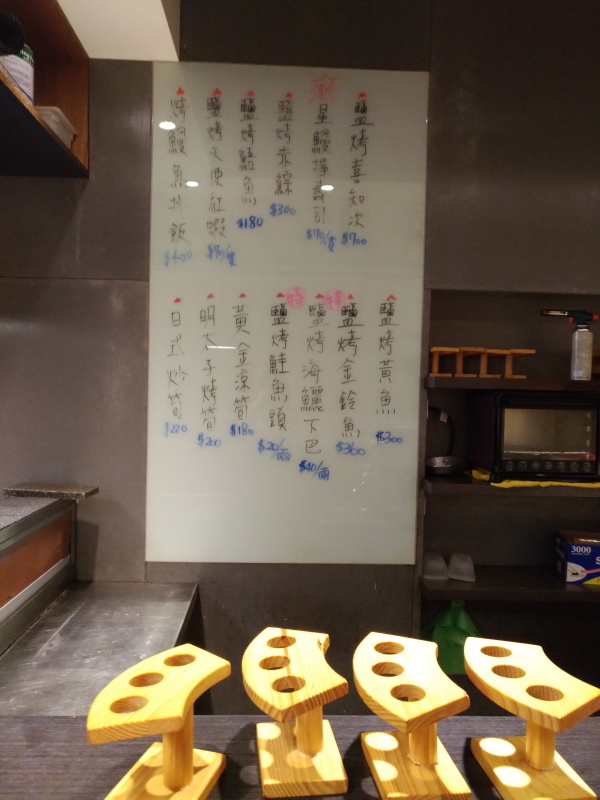 鹽烤喜知次
$700
新
星鰻握壽司
$90/貫
鹽烤赤鯮
$300
鹽烤鯧魚
$180
鹽烤天使紅蝦
$90/隻
烤鰻魚丼飯
$400
鹽烤黃魚
$300
特
鹽烤金鈴魚
$360
鹽烤海鱺下巴
$40/兩
特
鹽烤鮭魚頭
$20/兩
黃金涼筍
$180
明太子烤筍
$200
日式炒筍
$220
3000